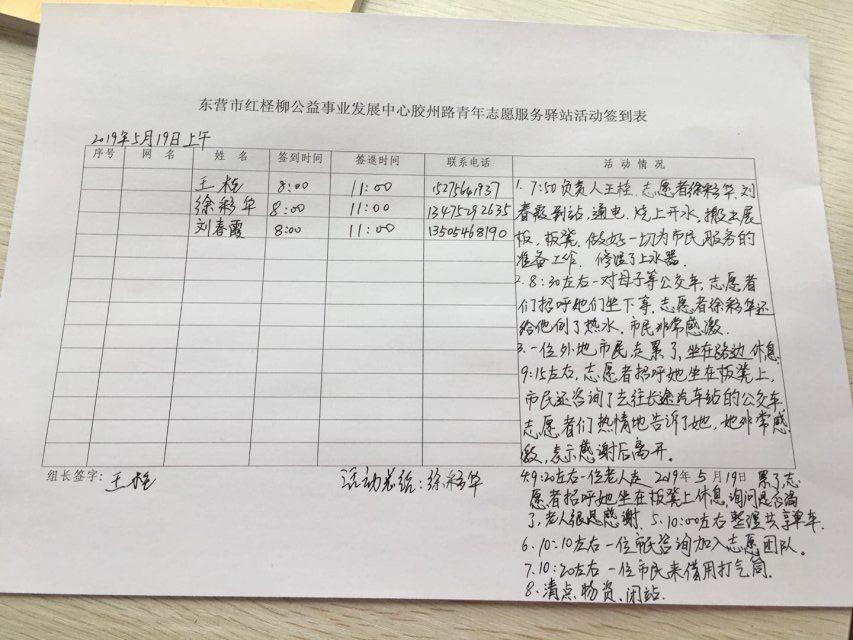 东营市红柽柳公益事业发展中心胶州路青年志愿服务驿站活动签到表
2019年5月19日上午
序号 网名 姓名 签到时间 签退时间 联系电话 活动情况
王柽 8:00 11:00
徐彩华 8:00 11:00 13475292635
刘春霞 8:00 11:00 13505468190
1. 7:50负责人王柽、志愿者徐彩华、刘
春霞到站,通电,烧上开水,搬出展
板,板凳,做好一切为市民服务的
准备工作. 修理了上水器.
2. 8:30左右一对母子等公交车,志愿者
们招呼她们坐下等,志愿者徐彩华还
给他倒了热水,市民非常感激.
3. 一位外地市民走累了,坐在路边休息
9:15左右,志愿者招呼她坐在板凳上,
市民还咨询了去往长途汽车站的公交车
志愿者们热情地告诉了她,她非常感
激,表示感谢后离开。
组长签字:王柽 活动总结:徐彩华
4. 9:20左右一位老人走 2019年5月19日 累了志
愿者招呼她坐在板凳上休息,询问是否渴
了,老人很是感谢. 5. 10:00左右整理共享单车.
6. 10:10左右一位市民咨询加入志愿团队.
7. 10:20左右一位市民来借用打气筒.
8. 清点物资、闭站.